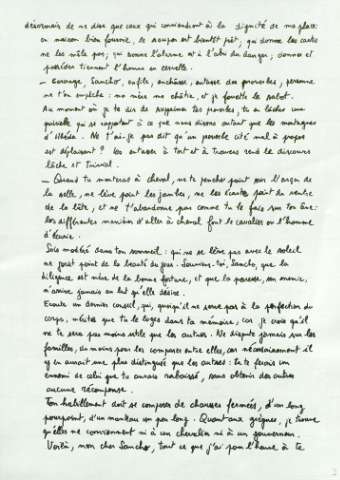 désormais de ne dire que ceux qui conviendront à la dignité de ma place
en maison bien fournie, le souper est bientôt prêt; qui donne les cartes
ne les mêle pas; qui sonne l'alarme est à l'abri du danger; donner et
posséder tiennent l'homme en cervelle.
— Courage, Sancho, enfile, enchâsse, entasse des proverbes, personne
ne t'en empêche: ma mère me châtie, et je fouette le sabot.
Au moment où je te dis de supprimer tes proverbes, tu en lâches une
qui se rapportent à ce que nous disons autant que les montagnes
d'Ubéda. Ne t'ai-je pas dit qu'un proverbe cité mal à propos
est déplaisant? les entasser à tort et à travers rend le discours
lâche et trivial.
— Quand tu monteras à cheval, ne te penche point sur l'arçon de
la selle, ne lève point les jambes, ne les écarte point du ventre
de la bête, et ne t'abandonne pas comme tu le fais sur ton âne:
les différentes manières d'aller à cheval font le cavalier ou l'homme
d'écurie.
Sois modéré dans ton sommeil: qui ne se lève pas avec le soleil
ne jouit point de la beauté du jour. Souviens-toi, Sancho, que la
diligence est mère de la bonne fortune, et que la paresse, son ennemie,
n'arrive jamais au but qu'elle désire.
Ecoute un dernier conseil, qui, quoiqu'il ne serve pas à la perfection du
corps, mérite que tu le loges dans ta mémoire, car je crois qu'il
ne te sera pas moins utile que les autres. Ne dispute jamais sur les
familles, du moins pour les comparer entre elles, car nécessairement il
y en aurait une plus distinguée que les autres: tu te ferais un
ennemi de celui que tu aurais rabaissé, sans obtenir des autres
aucune récompense.
Ton habillement doit se composer de chausses fermées, d'un long
pourpoint, d'un manteau un peu long. Quant aux grègues, je trouve
qu'elles ne conviennent ni à un chevalier ni à un gouverneur.
Voilà, mon cher Sancho, tout ce que j'ai pour l'heure à te